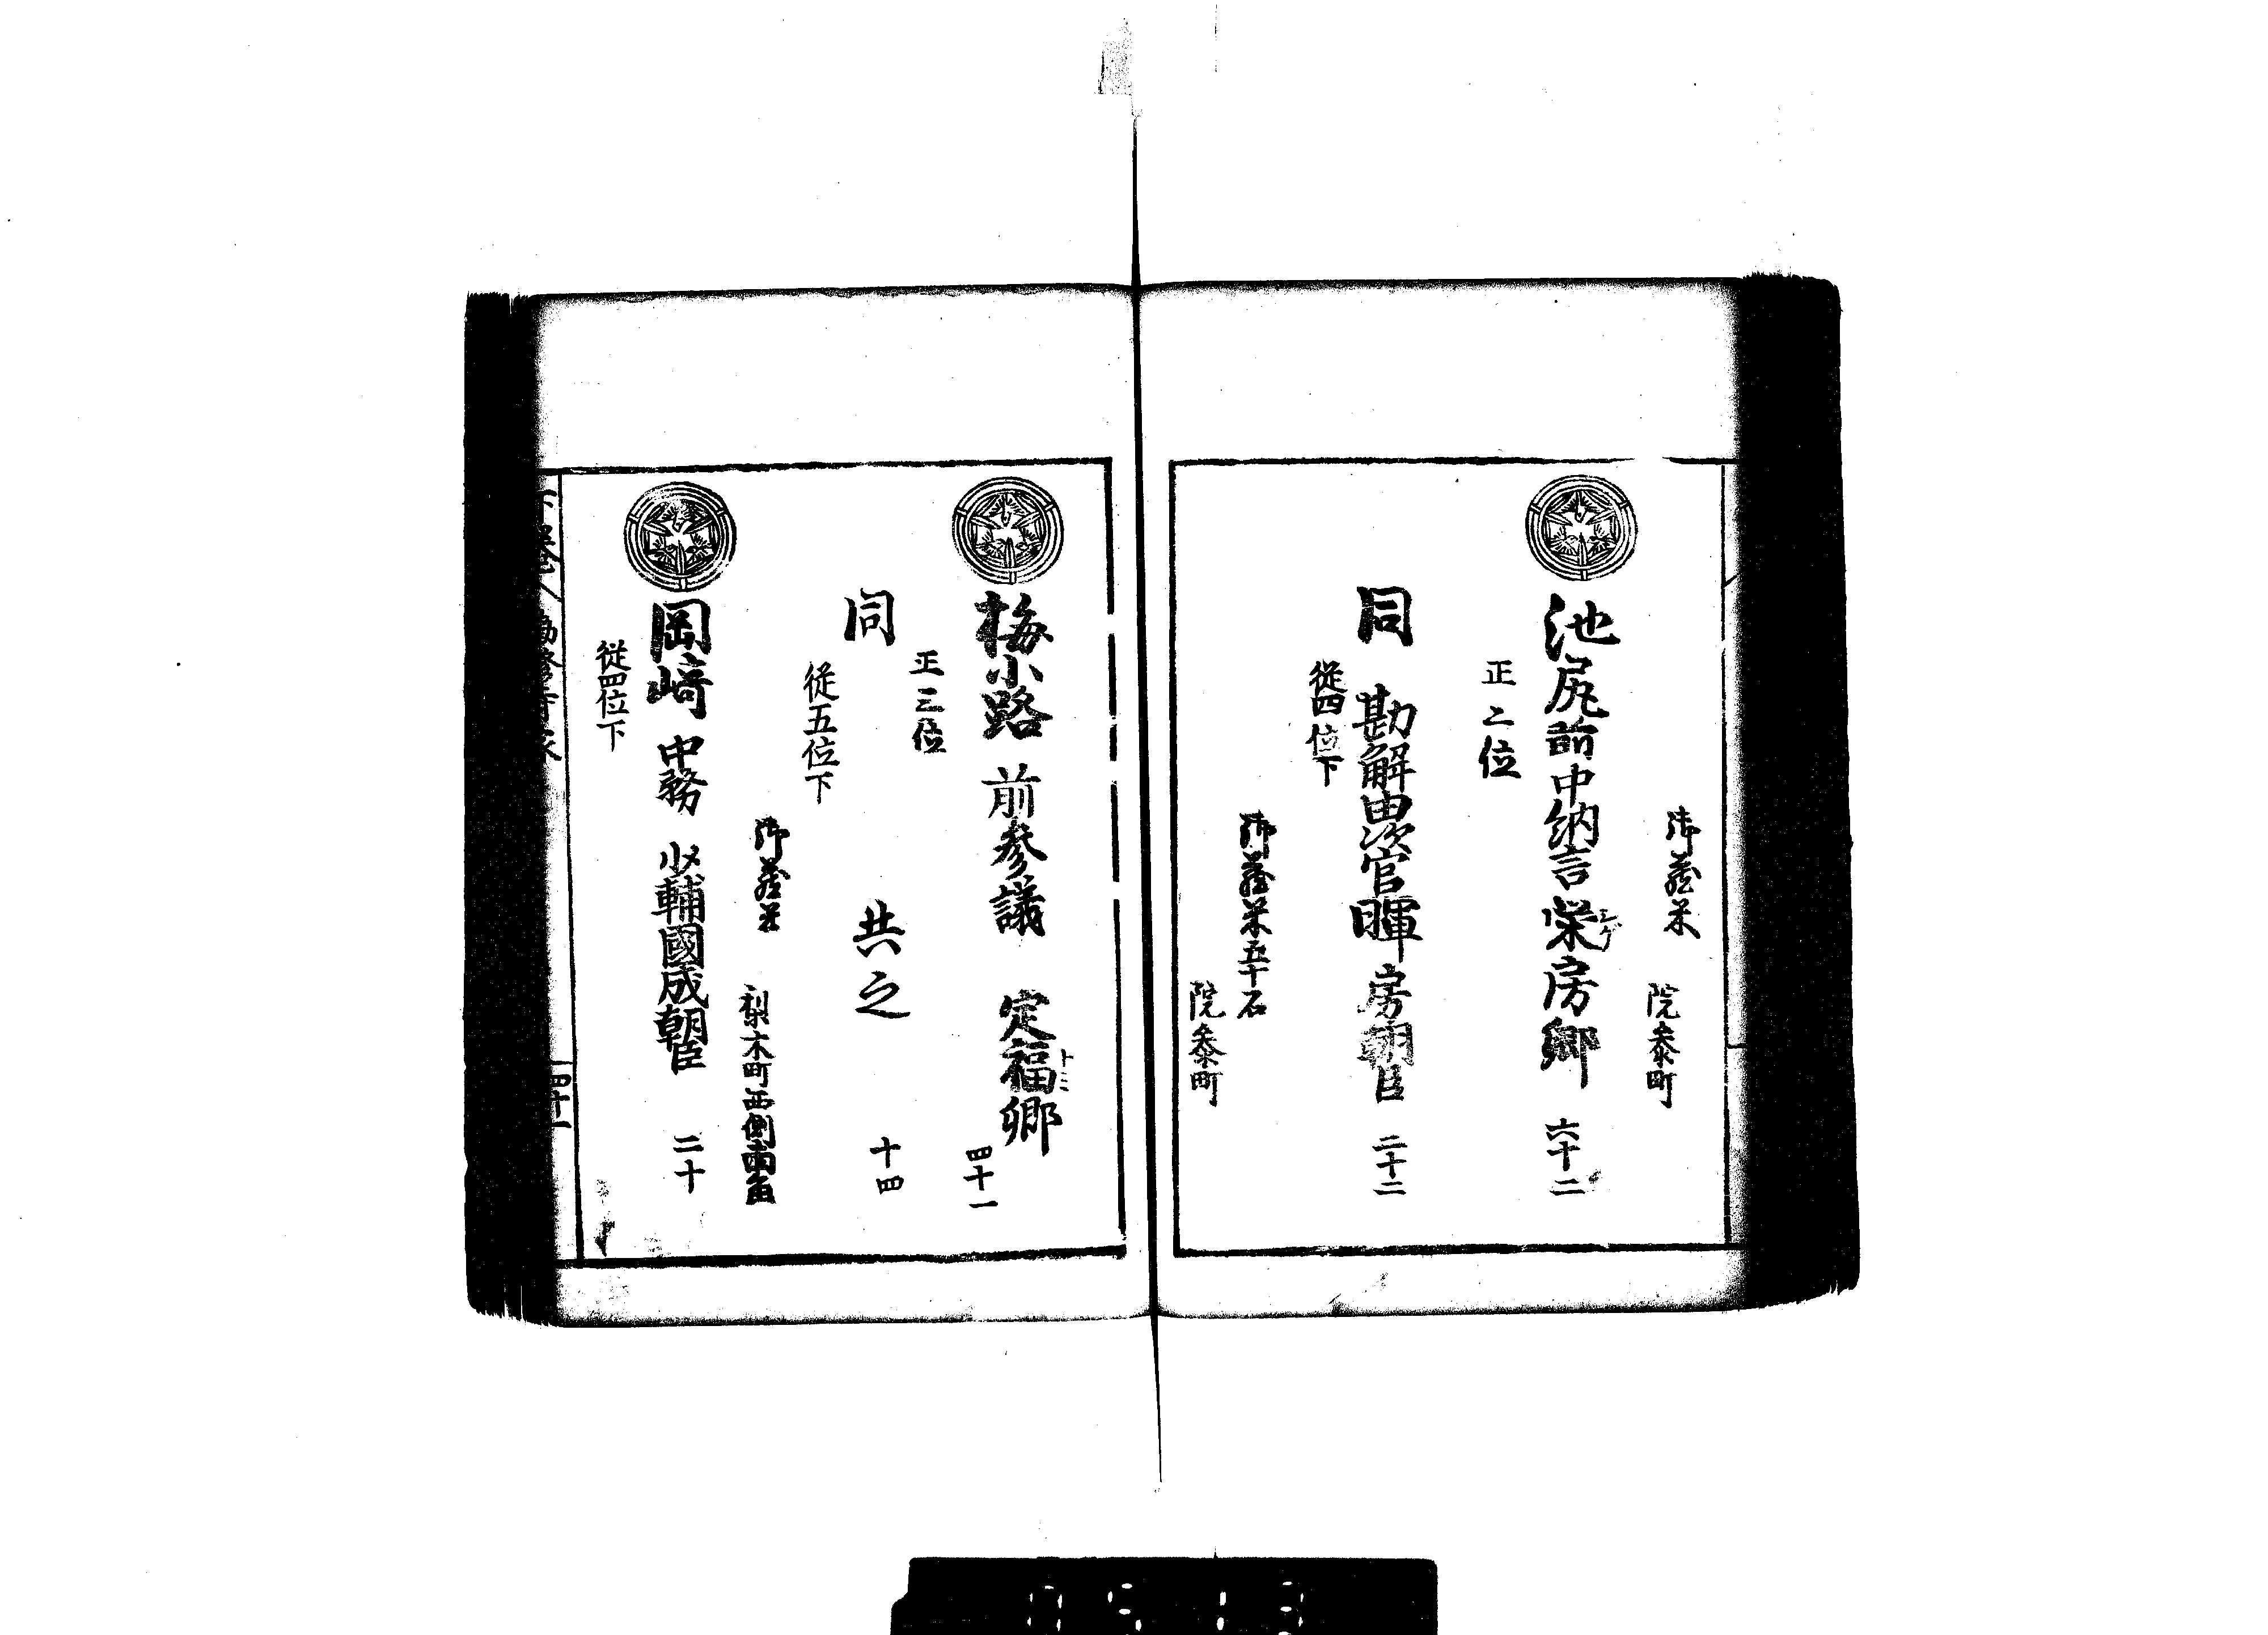 御蔵米
院参町
池尻前中納言榮房卿 六十二
ミケ
正二位
同 勘解由次官暉房朝臣 二十二
従四位下
御蔵米五十石
院参町
梅小路 前参議 定福卿 四十一
トミ
正三位
同 共之 十四
従五位下
御蔵米
梨木町西側南角
岡﨑 中務少輔國成朝臣 二十
従四位下
四十一